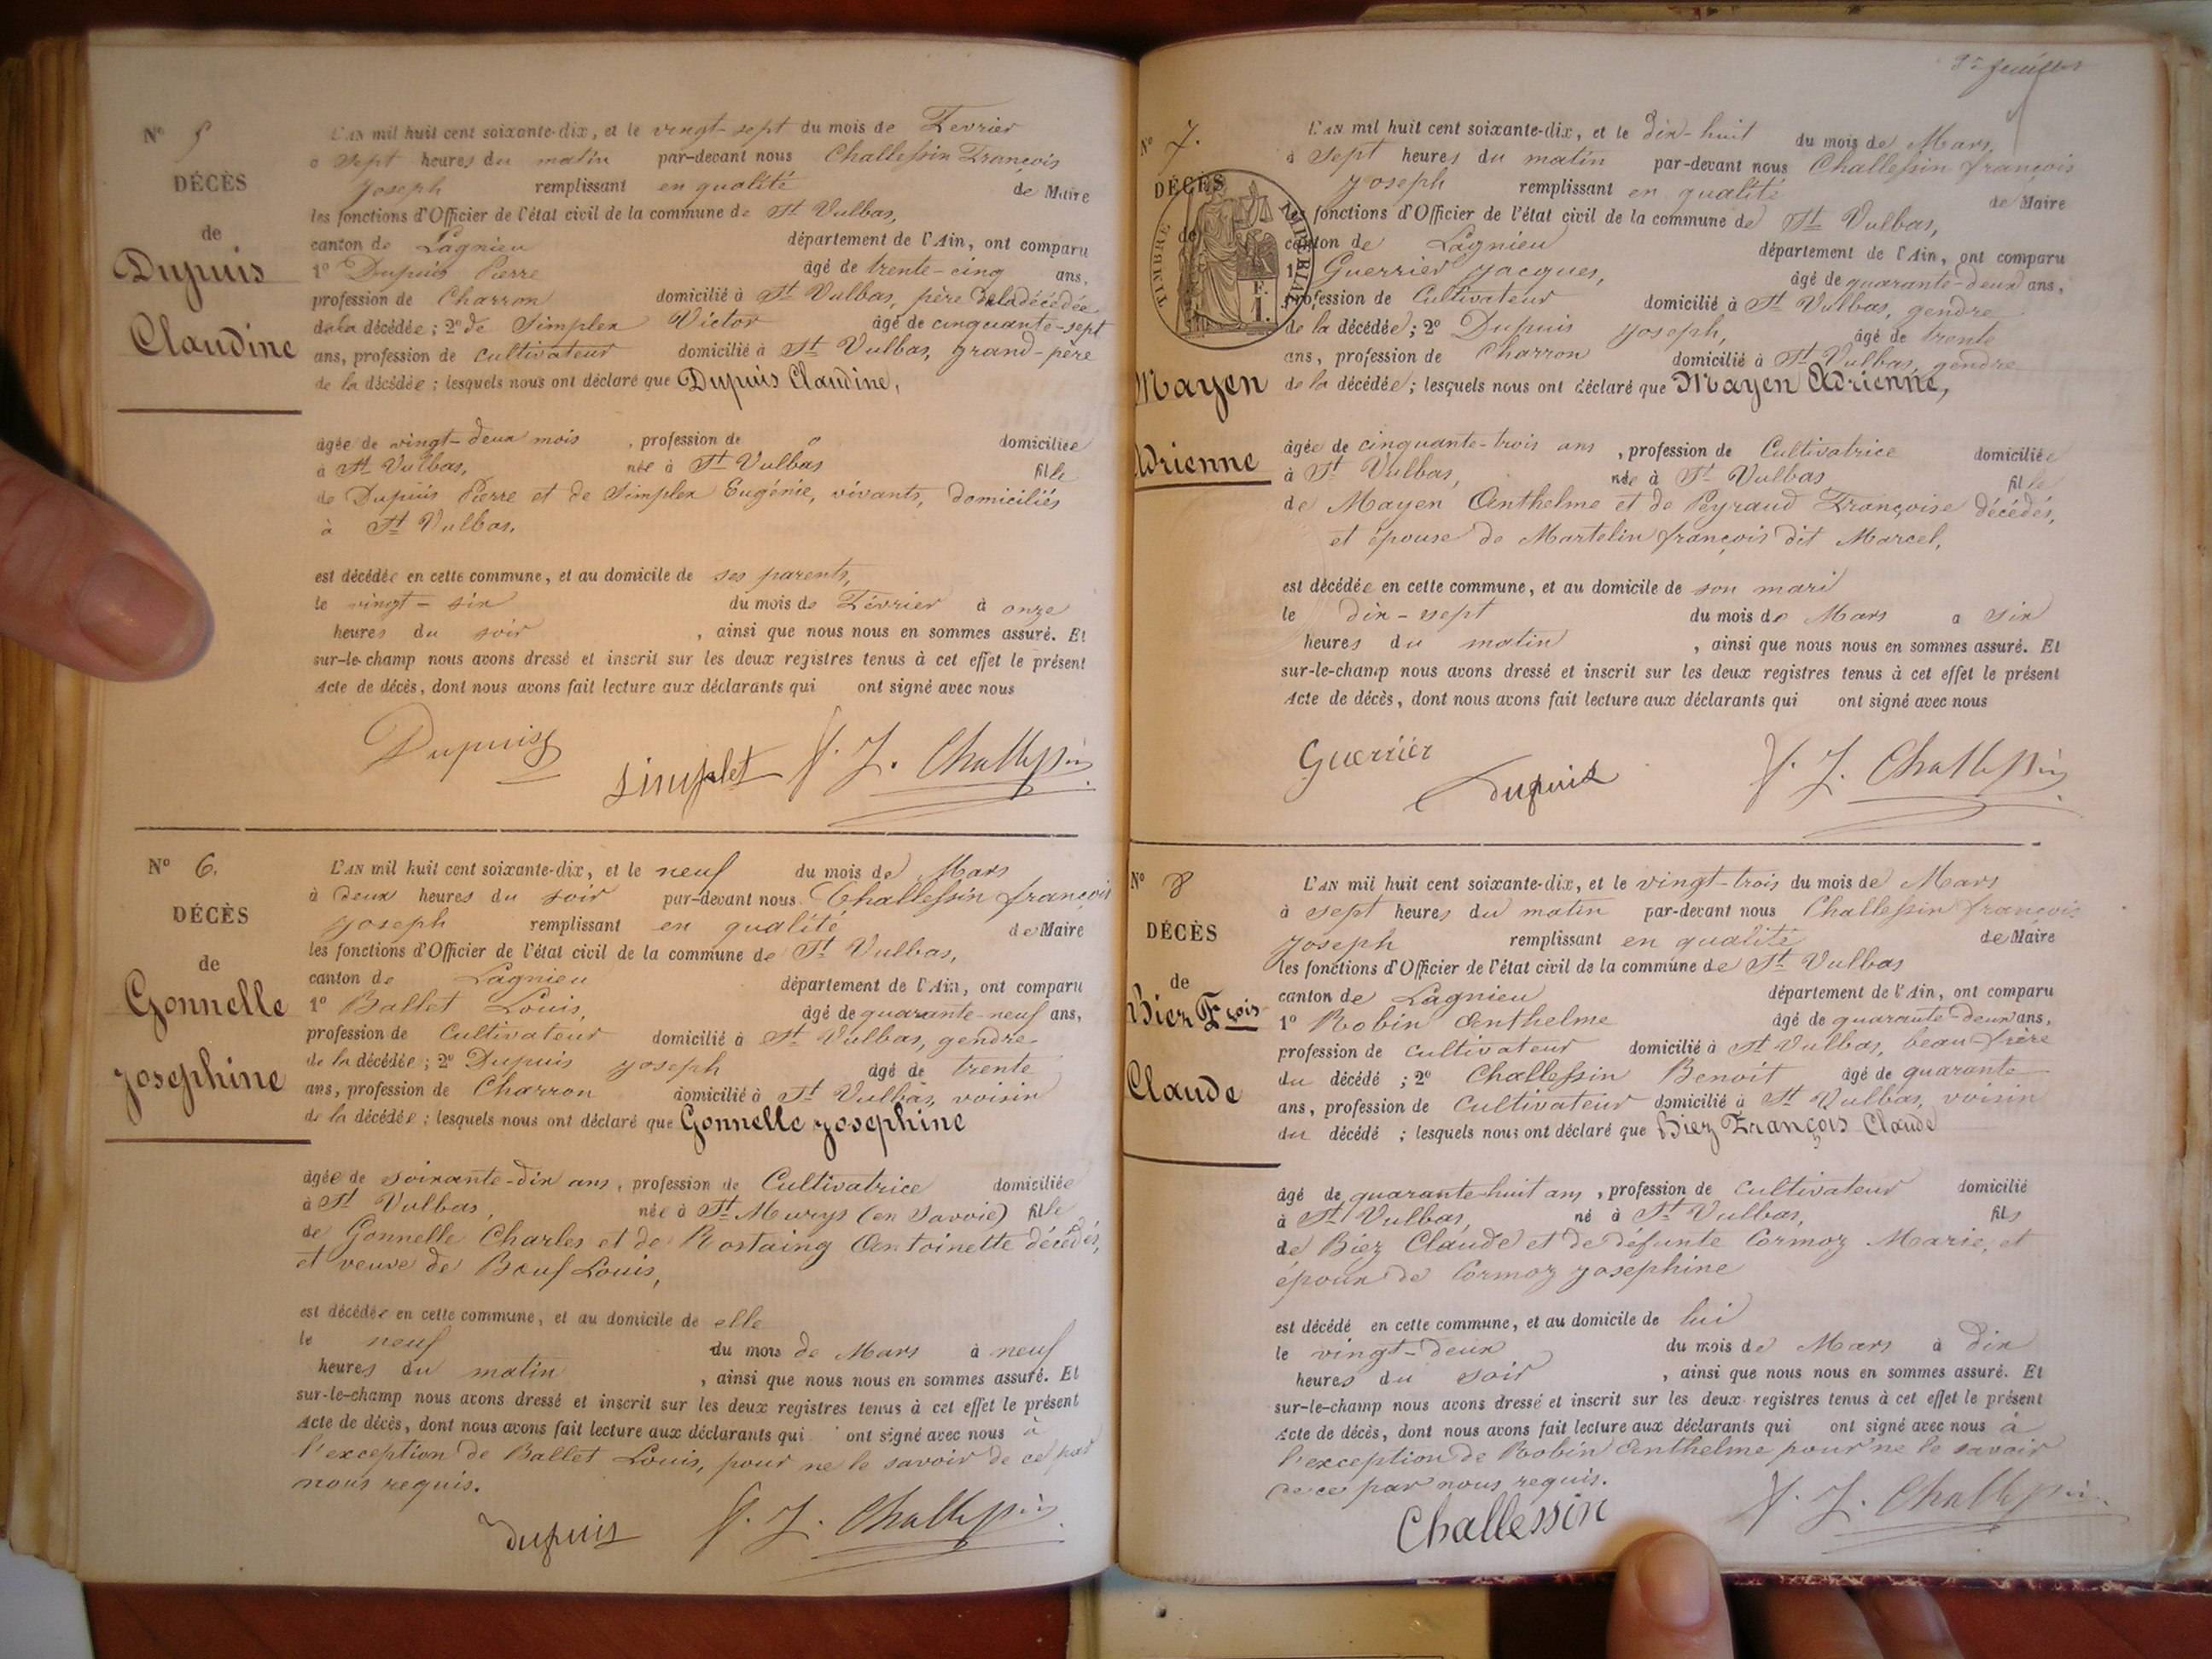 N° 5
DÉCÈS
de
Dupuis
Claudine
L'AN mil huit cent soixante-dix, et le vingt-sept du mois de Fevrier
a sept heures du matin par-devant nous Challessin François
Joseph remplissant en qualité de Maire
les fonctions d'Officier de l'état civil de la commune de St Vulbas,
canton de Lagnieu département de l'Ain, ont comparu
1° Dupuis Pierre âgé de trente-cinq ans,
profession de Charron domicilié à St Vulbas, père de la décédée
de la décédée ; 2° de Simplex Victor âgé de cinquante-sept
ans, profession de cultivateur domicilié à St Vulbas, grand-père
de la décédée ; lesquels nous ont déclaré que Dupuis Claudine,
âgée de vingt-deux mois , profession de domiciliée
à St Vulbas, née à St Vulbas fille
de Dupuis Pierre et de Simplex Eugénie, vivants, domiciliés
à St Vulbas,
est décédée en cette commune, et au domicile de ses parents,
le vingt-six du mois de Février à onze
heures du soir , ainsi que nous nous en sommes assuré. Et
sur-le-champ nous avons dressé et inscrit sur les deux registres tenus à cet effet le présent
Acte de décès, dont nous avons fait lecture aux déclarants qui ont signé avec nous
Dupuis Simplet f. J. Challessin
N° 6.
DÉCÈS
de
Gonnelle
Josephine
L'AN mil huit cent soixante-dix, et le neuf du mois de Mars
à deux heures du soir par-devant nous Challessin françois
Joseph remplissant en qualité de Maire
les fonctions d'Officier de l'état civil de la commune de St Vulbas,
canton de Lagnieu département de l'Ain, ont comparu
1° Ballet Louis, âgé de quarante-neuf ans,
profession de Cultivateur domicilié à St Vulbas, gendre
de la décédée ; 2° Dupuis Joseph âgé de trente
ans, profession de Charron domicilié à St Vulbas, voisin
de la décédée ; lesquels nous ont déclaré que Gonnelle Josephine
âgée de soixante-dix ans, profession de Cultivatrice domiciliée
à St Vulbas, née à St (en Savoie) fille
de Gonnelle Charles et de Rostaing Antoinette décédés,
et veuve de Bœuf Louis,
est décédée en cette commune, et au domicile de elle
le neuf du mois de Mars à neuf
heures du matin , ainsi que nous nous en sommes assuré. Et
sur-le-champ nous avons dressé et inscrit sur les deux registres tenus à cet effet le présent
Acte de décès, dont nous avons fait lecture aux déclarants qui ont signé avec nous à
l'exception de Ballet Louis, pour ne le savoir de ce par
nous requis.
dupuis f. J. Challessin
N° 7.
DÉCÈS
de
TIMBRE IMPERIAL
F.
1.
Mayen
Adrienne
L'AN mil huit cent soixante-dix, et le dix-huit du mois de Mars,
à sept heures du matin par-devant nous Challessin françois
Joseph remplissant en qualité de Maire
les fonctions d'Officier de l'état civil de la commune de St Vulbas,
canton de Lagnieu département de l'Ain, ont comparu
1° Guerrier Jacques, âgé de quarante-deux ans,
profession de Cultivateur domicilié à St Vulbas, gendre
de la décédée ; 2° Dupuis Joseph, âgé de trente
ans, profession de Charron domicilié à St Vulbas, gendre
de la décédée ; lesquels nous ont déclaré que Mayen Adrienne,
âgée de cinquante-trois ans , profession de Cultivatrice domiciliée
à St Vulbas, née à St Vulbas fille
de Mayen Anthelme et de Peyraud Françoise décédés,
et épouse de Martelin françois dit Marcel,
est décédée en cette commune, et au domicile de son mari
le dix-sept du mois de Mars a six
heures du matin , ainsi que nous nous en sommes assuré. Et
sur-le-champ nous avons dressé et inscrit sur les deux registres tenus à cet effet le présent
Acte de décès, dont nous avons fait lecture aux déclarants qui ont signé avec nous
Guerrier dupuis f. J. Challessin
N° 8
DÉCÈS
de
Biez Fçois
Claude
L'AN mil huit cent soixante-dix, et le vingt-trois du mois de Mars
à sept heures du matin par-devant nous Challessin françois
Joseph remplissant en qualité de Maire
les fonctions d'Officier de l'état civil de la commune de St Vulbas
canton de Lagnieu département de l'Ain, ont comparu
1° Robin Anthelme âgé de quarante-deux ans,
profession de cultivateur domicilié à St Vulbas, beau frère
du décédé ; 2° Challessin Benoit âgé de quarante
ans, profession de Cultivateur domicilié à St Vulbas, voisin
du décédé ; lesquels nous ont déclaré que Biez François Claude
âgé de quarante-huit ans , profession de Cultivateur domicilié
à St Vulbas, né à St Vulbas, fils
de Biez Claude et de défunte Cormoz Marie, et
époux de Cormoz Josephine
est décédé en cette commune, et au domicile de lui
le vingt-deux du mois de Mars à dix
heures du soir , ainsi que nous nous en sommes assuré. Et
sur-le-champ nous avons dressé et inscrit sur les deux registres tenus à cet effet le présent
Acte de décès, dont nous avons fait lecture aux déclarants qui ont signé avec nous à
l'exception de Robin Anthelme pour ne le savoir
de ce par nous requis.
Challessin f. J. Challessin